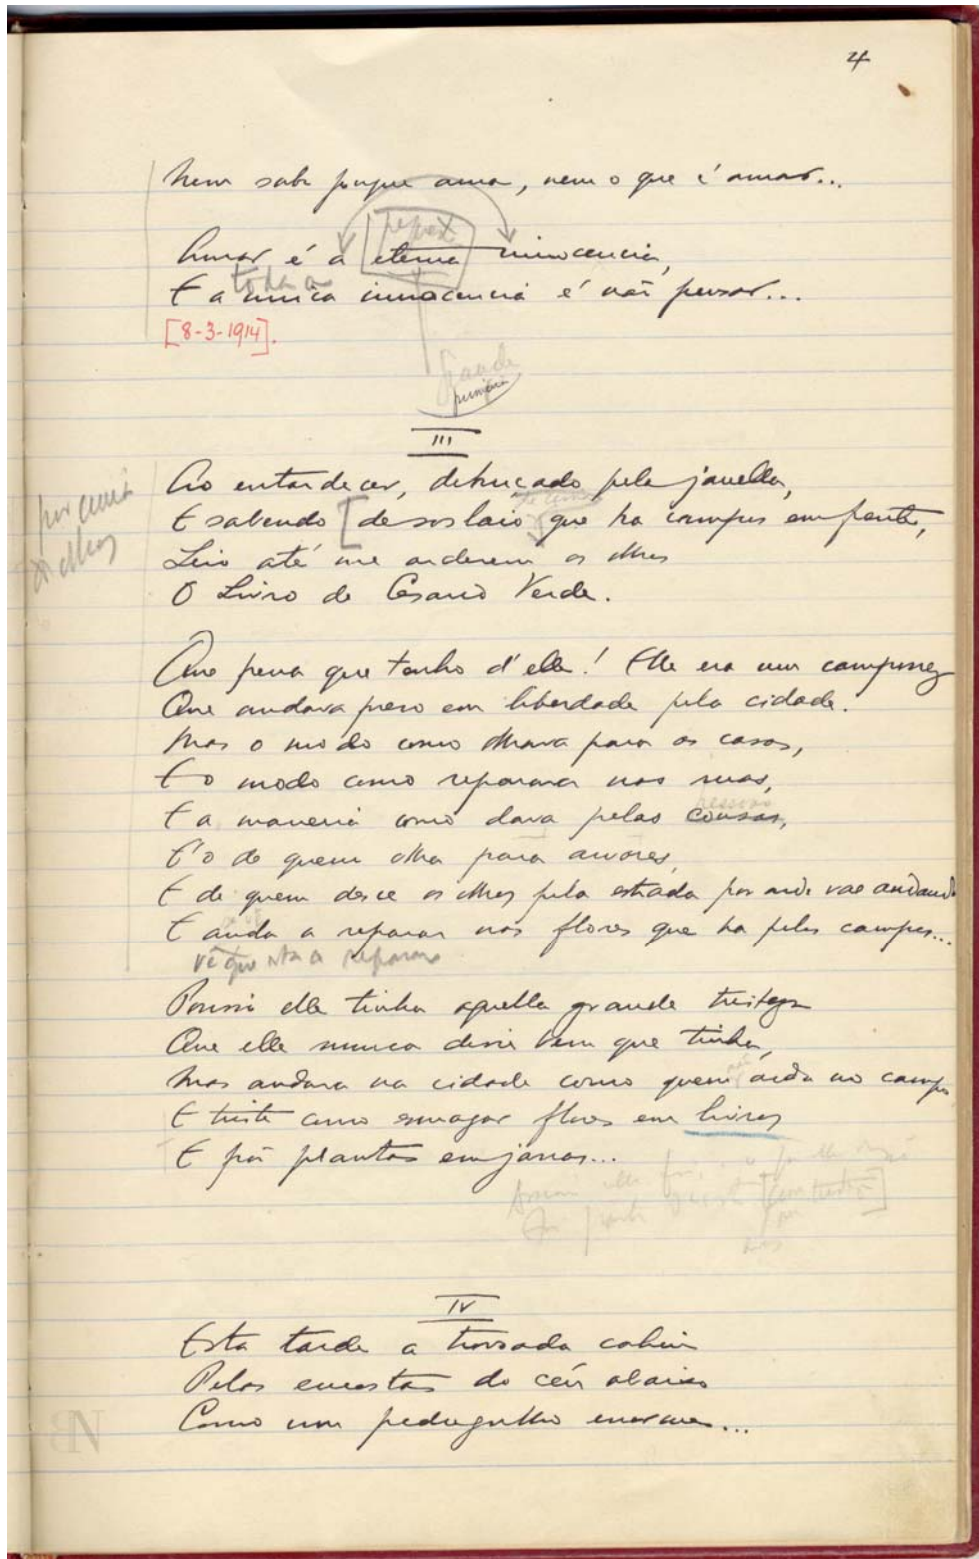 4
Nem sabe porque ama, nem o que é amar...
Amar é a eterna innocencia,
toda a
E a unica innocencia é não pensar...
[8-3-1914].
grande
primeira
III
Ao entardecer, debruçado pela janella,
por cima
E sabendo [de soslaio que ha campos em frente,
os olhos
Leio até me arderem os olhos
O Livro de Cesario Verde.
Que pena que tenho d'elle! Elle era um camponez
Que andava preso em liberdade pela cidade.
Mas o modo como olhava para as casas,
E o modo como reparava nas ruas,
pessoas
E a maneira como dava pelas cousas,
É o de quem olha para arvores,
E de quem desce os olhos pela estrada por onde vae andando
E anda a reparar nas flores que ha pelos campos...
vê que está a reparar
Porisso elle tinha aquella grande tristeza
Que elle nunca disse bem que tinha,
Mas andava na cidade como quem anda no campo
E triste como esmagar flores em livros
E pôr plantas em jarras...
IV
Esta tarde a trovoada cahiu
Pelas encostas do céu abaixo
Como um pedregulho enorme...
BN